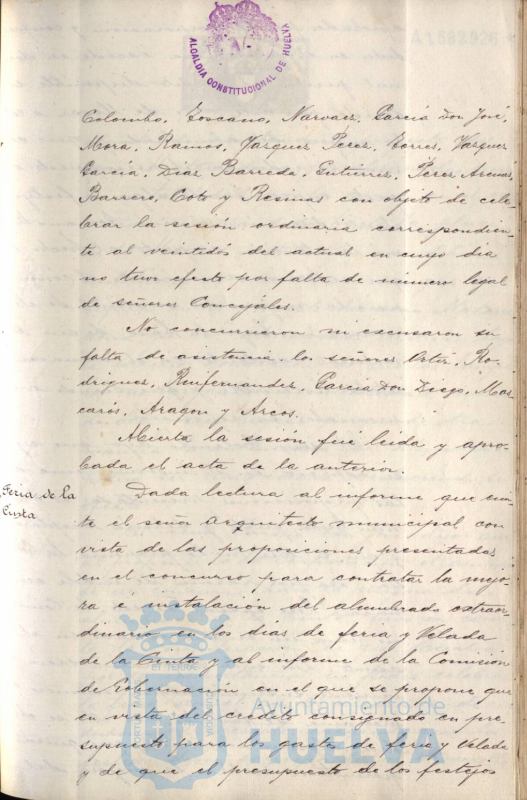 ALCALDIA CONSTITUCIONAL DE HUELVA
A1582926
Colombo, Toscano, Narvaez, García Don José,
Mora, Ramos, Vazquez Perez, Torres, Vazquez
García, Diaz Barreda, Gutierrez, Perez Arenas,
Barrero, Coto y Resinas con objeto de cele-
brar la sesión ordinaria correspondien-
te al veintidós del actual en cuyo dia
no tuvo efecto por falta de número legal
de señores Concejales.
No concurrieron ni excusaron su
falta de asistencia los señores Ortiz, Ro-
driguez, Garcia Don Diego, Mas-
carós, Aragon y Arcos.
Abierta la sesión fué leida y apro-
bada el acta de la anterior.
Feria de la
Cinta
Dada lectura al informe que emi-
te el señor Arquitecto municipal con
vista de las proposiciones presentadas
en el concurso para contratar la mejo-
ra é instalación del alumbrado extraor-
dinario en los dias de feria y Velada
de la Cinta y al informe de la Comisión
de Gobernación en el que se propone que
en vista del crédito consignado en pre-
supuesto para los gastos de feria y Velada
y de que el presupuesto de los festejos
Ayuntamiento de
HUELVA